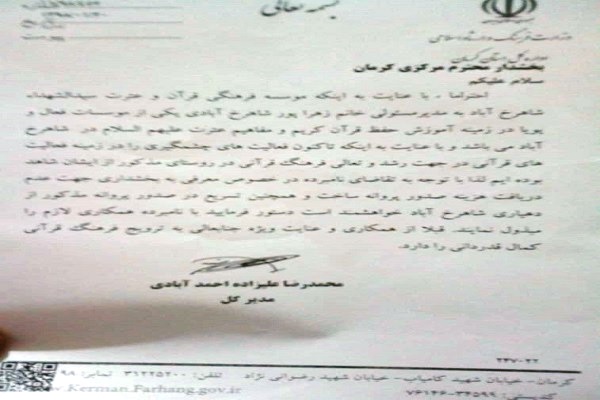 بسمه تعالی
وزارت فرهنگ و ارشاد اسلامی
اداره کل استان کرمان
بخشدار محترم مرکزی کرمان
سلام علیکم
احتراما ، با عنایت به اینکه موسسه فرهنگی قرآن و عترت سیدالشهداء
شاهرخ آباد به مدیرمسئولی خانم زهرا پور شاهرخ آبادی یکی از موسسات فعال و
پویا در زمینه آموزش حفظ قرآن کریم و مفاهیم عترت علیهم السلام در شاهرخ
آباد می باشد و با عنایت به اینکه تاکنون فعالیت های چشمگیری را در زمینه فعالیت
های قرآنی در جهت رشد و تعالی فرهنگ قرآنی در روستای مذکور از ایشان شاهد
بوده ایم لذا با توجه به تقاضای نامبرده در خصوص معرفی به بخشداری جهت عدم
دریافت هزینه صدور پروانه ساخت و همچنین تسریع در صدور پروانه مذکور از
دهیاری شاهرخ آباد خواهشمند است دستور فرمایید با نامبرده همکاری لازم را
مبذول نمایند. قبلا از همکاری و عنایت ویژه جنابعالی به ترویج فرهنگ قرآنی
کمال قدردانی را دارد.
محمدرضا علیزاده احمد آبادی
مدیر کل
۲۴۷-۲۲
کرمان- خیابان شهید کامیاب- خیابان شهید رضوانی نژاد تلفن: ۳۱۲۲۵۲۰۰ نمابر: ۹۸
کدپستی: ۳۳۵۹۹-۷۶۱۴۶
www.Kerman.Farhang.gov.ir